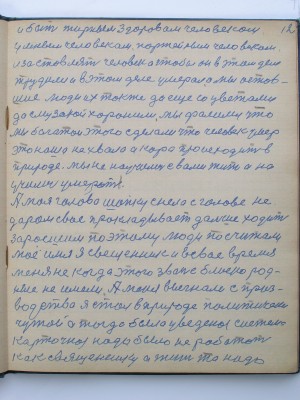 12
и быть первым здоровам человеком
умным человекам, партейным человекам.
и заставлять человека чтобы он в этом деле
трудился и в этом деле умерал, а мы астав-
шие люди их тоже до еще со цветами
до с музыкой хоронили, мы фалимся что
мы богаты этого сделали что человек умер
это наша не хвала а кора происходить в
природе. мы не научились вами жить а на
учились умерать!
А моя голова шапку сняла с голове не
даром свае прокладывает далше ходить
заросшем поэтому люди посчитали
моё имя я священник и в свае время
меня не когда этого звать близко род-
ные не имели. А меня выгнали с приз-
водства я стал в природе политиком
чужой а тогда было уведена система
карточная надо было не работать
как священнику а жить то надо